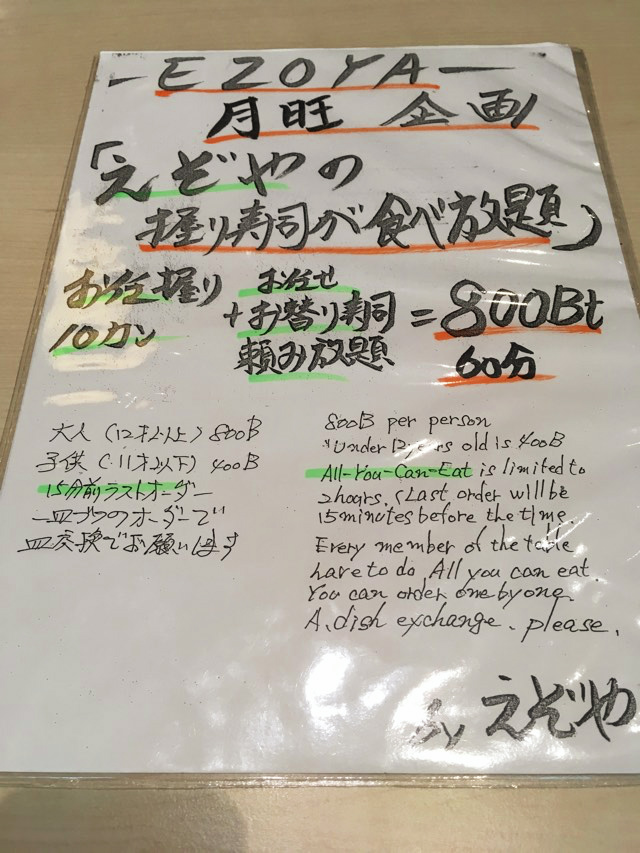 EZOYA
月旺 企画
「えぞやの
握り寿司が食べ放題」
お任握り
10カン
+
お任せ
お替り寿司
頼み放題
= 800Bt
60分
大人(12才以上) 800B
子供(11才以下) 400B
15分前ラストオーダー
一皿づつのオーダーで
皿交換でお願いします
800B per person
*Under 12years old is 400B
All-You-Can-Eat is limited to
2hours. (Last order will be
15minutes before the time.
Every member of the table
have to do All you can eat.
You can order one by one.
A dish exchange. please.
by えぞや